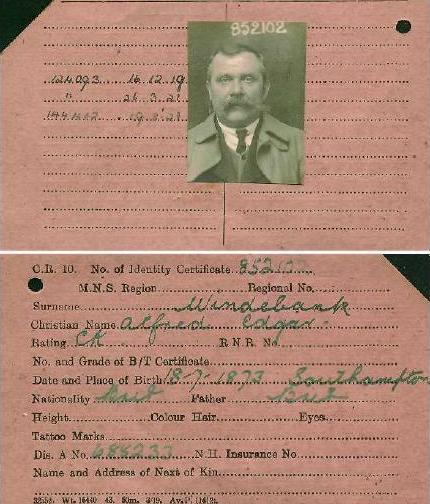 852102
124093 16.12.19
" 26.3.21
C.R. 10. No. of Identity Certificate. 852102
M.N.S. Region Regional No.
Surname Windebank
Christian Name Alfred Edgar
Rating. CK R.N.R. No.
No. and Grade of B/T Certificate
Date and Place of Birth. 18-7-1873 Southampton
Nationality Brit Father Brit
Height. Colour Hair. Eyes
Tattoo Marks
Dis. A No. N.H. Insurance No
Name and Address of Next of Kin